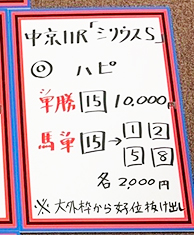 中京11R「シリウスS」
◎ ハピ
単勝 15 10,000円
馬単 15 → 1 2
5 8
各 2,000円
※ 大外枠から好位抜け出し